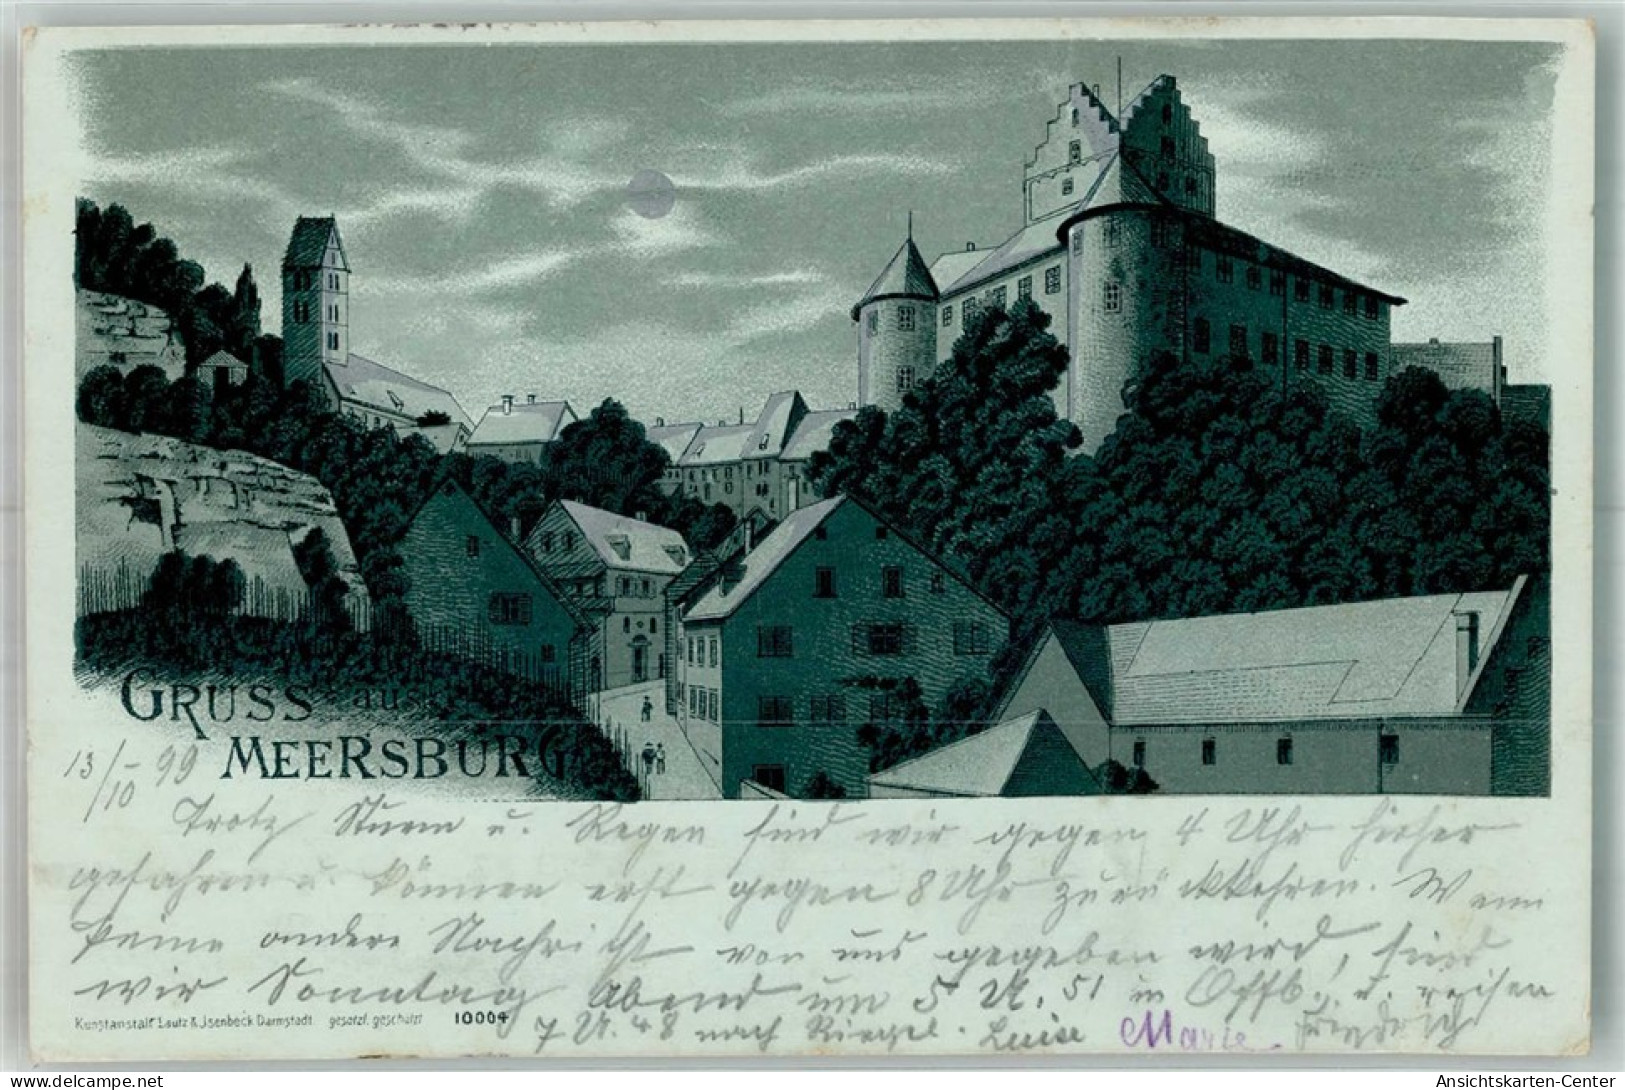 GRUSS aus
MEERSBURG
13/10 99
Trotz Sturm u. Regen sind wir gegen 4 Uhr hieher
gefahren u. können erst gegen 8 Uhr zurückkehren. Wenn
keine andere Nachricht von uns gegeben wird, sind
wir Sonntag Abend um 5 U. 51 in Offb., u. reisen
7 U. 48 nach Riegel. Luise Marie Friedrich
Kunstanstalt Lautz & Jsenbeck Darmstadt. gesetzl. geschützt 10004
Ansichtskarten-Center